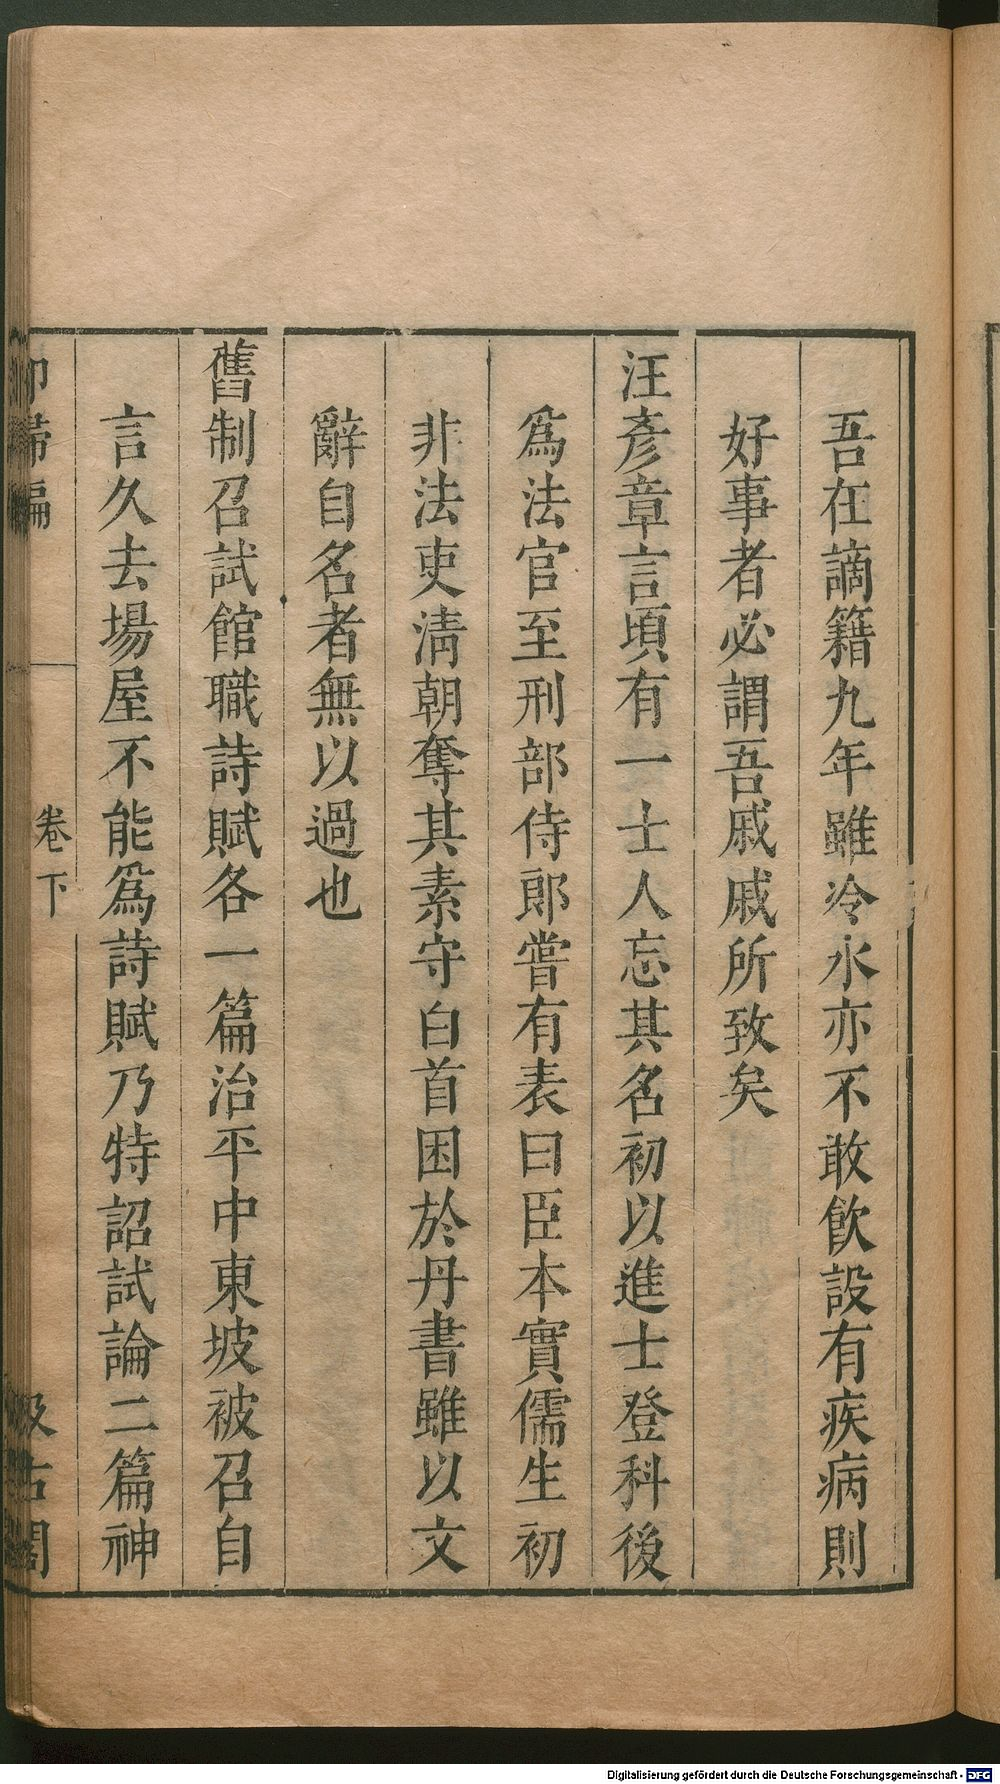 吾在謫籍九年雖冷水亦不敢飮設有疾病則
好事者必謂吾戚戚所致矣
汪彥章言頃有一士人忘其名初以進士登科後
爲法官至刑部侍郞嘗有表曰臣本實儒生初
非法吏淸朝奪其素守白首困於丹書雖以文
辭自名者無以過也
舊制召試館職詩賦各一篇治平中東坡被召自
言久去場屋不能爲詩賦乃特詔試論二篇神
卻掃編
卷下
汲古閣
Digitalisierung gefördert durch die Deutsche Forschungsgemeinschaft - DFG